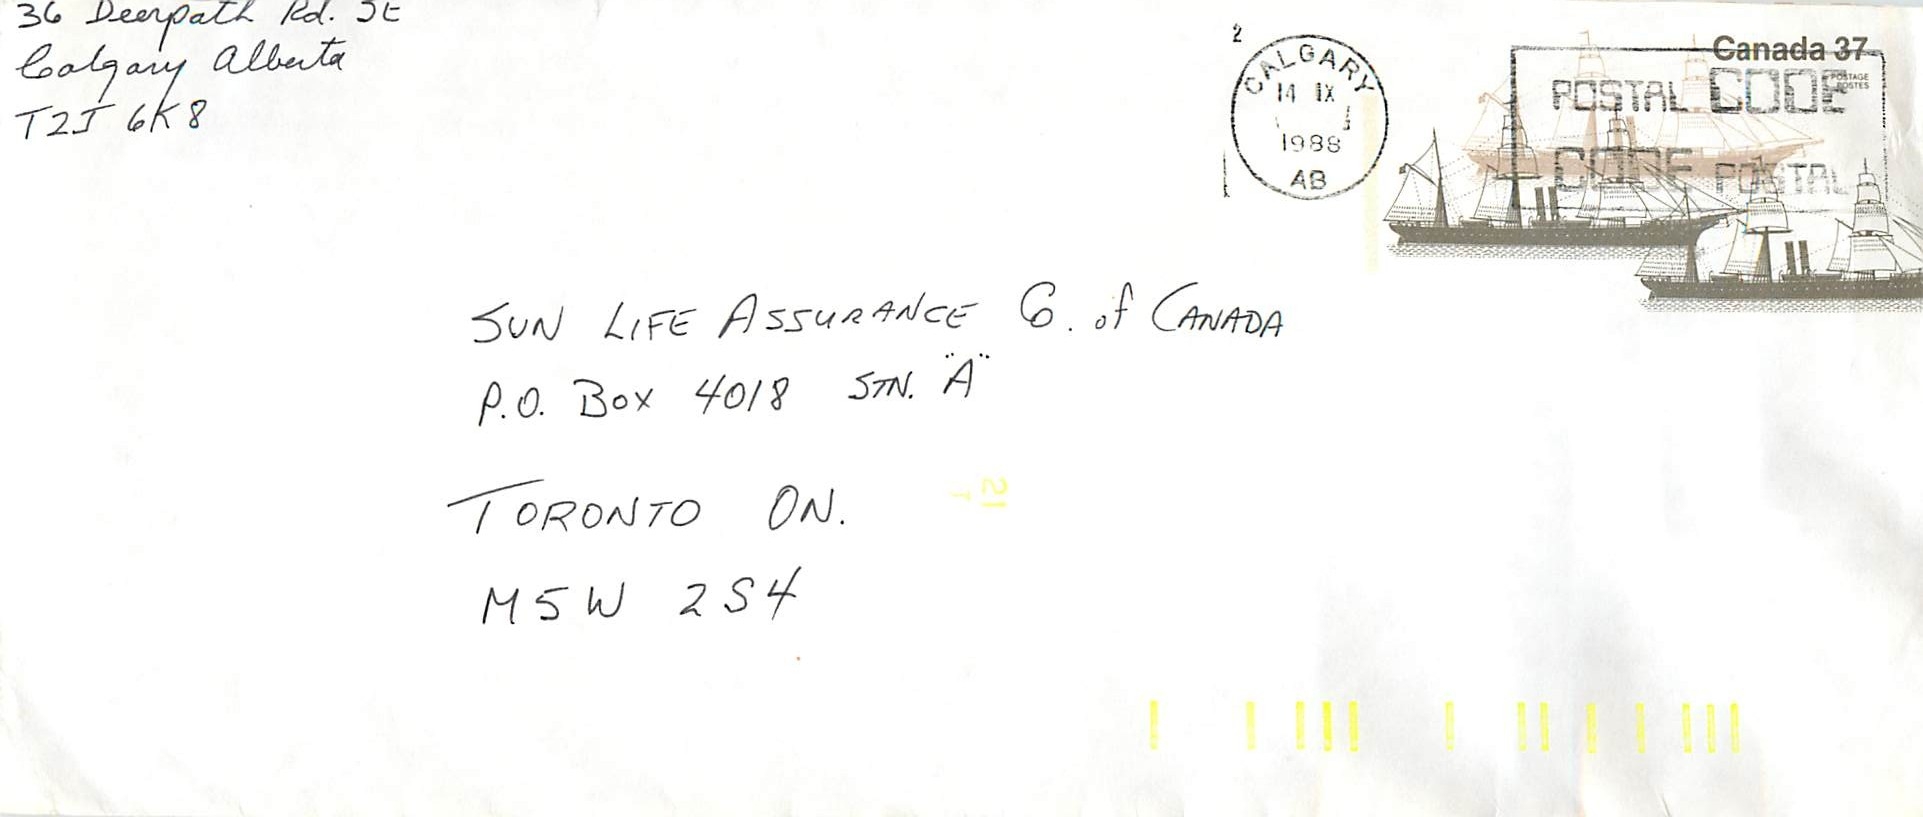 36 Deerpath Rd. SE
Calgary Alberta
T2J 6K8
2
CALGARY
14 IX
1988
AB
Canada 37
POSTAGE
POSTES
POSTAL CODE
CODE POSTAL
SUN LIFE ASSURANCE Co. of CANADA
P.O. Box 4018 STN. "A"
TORONTO ON.
M5W 2S4
21